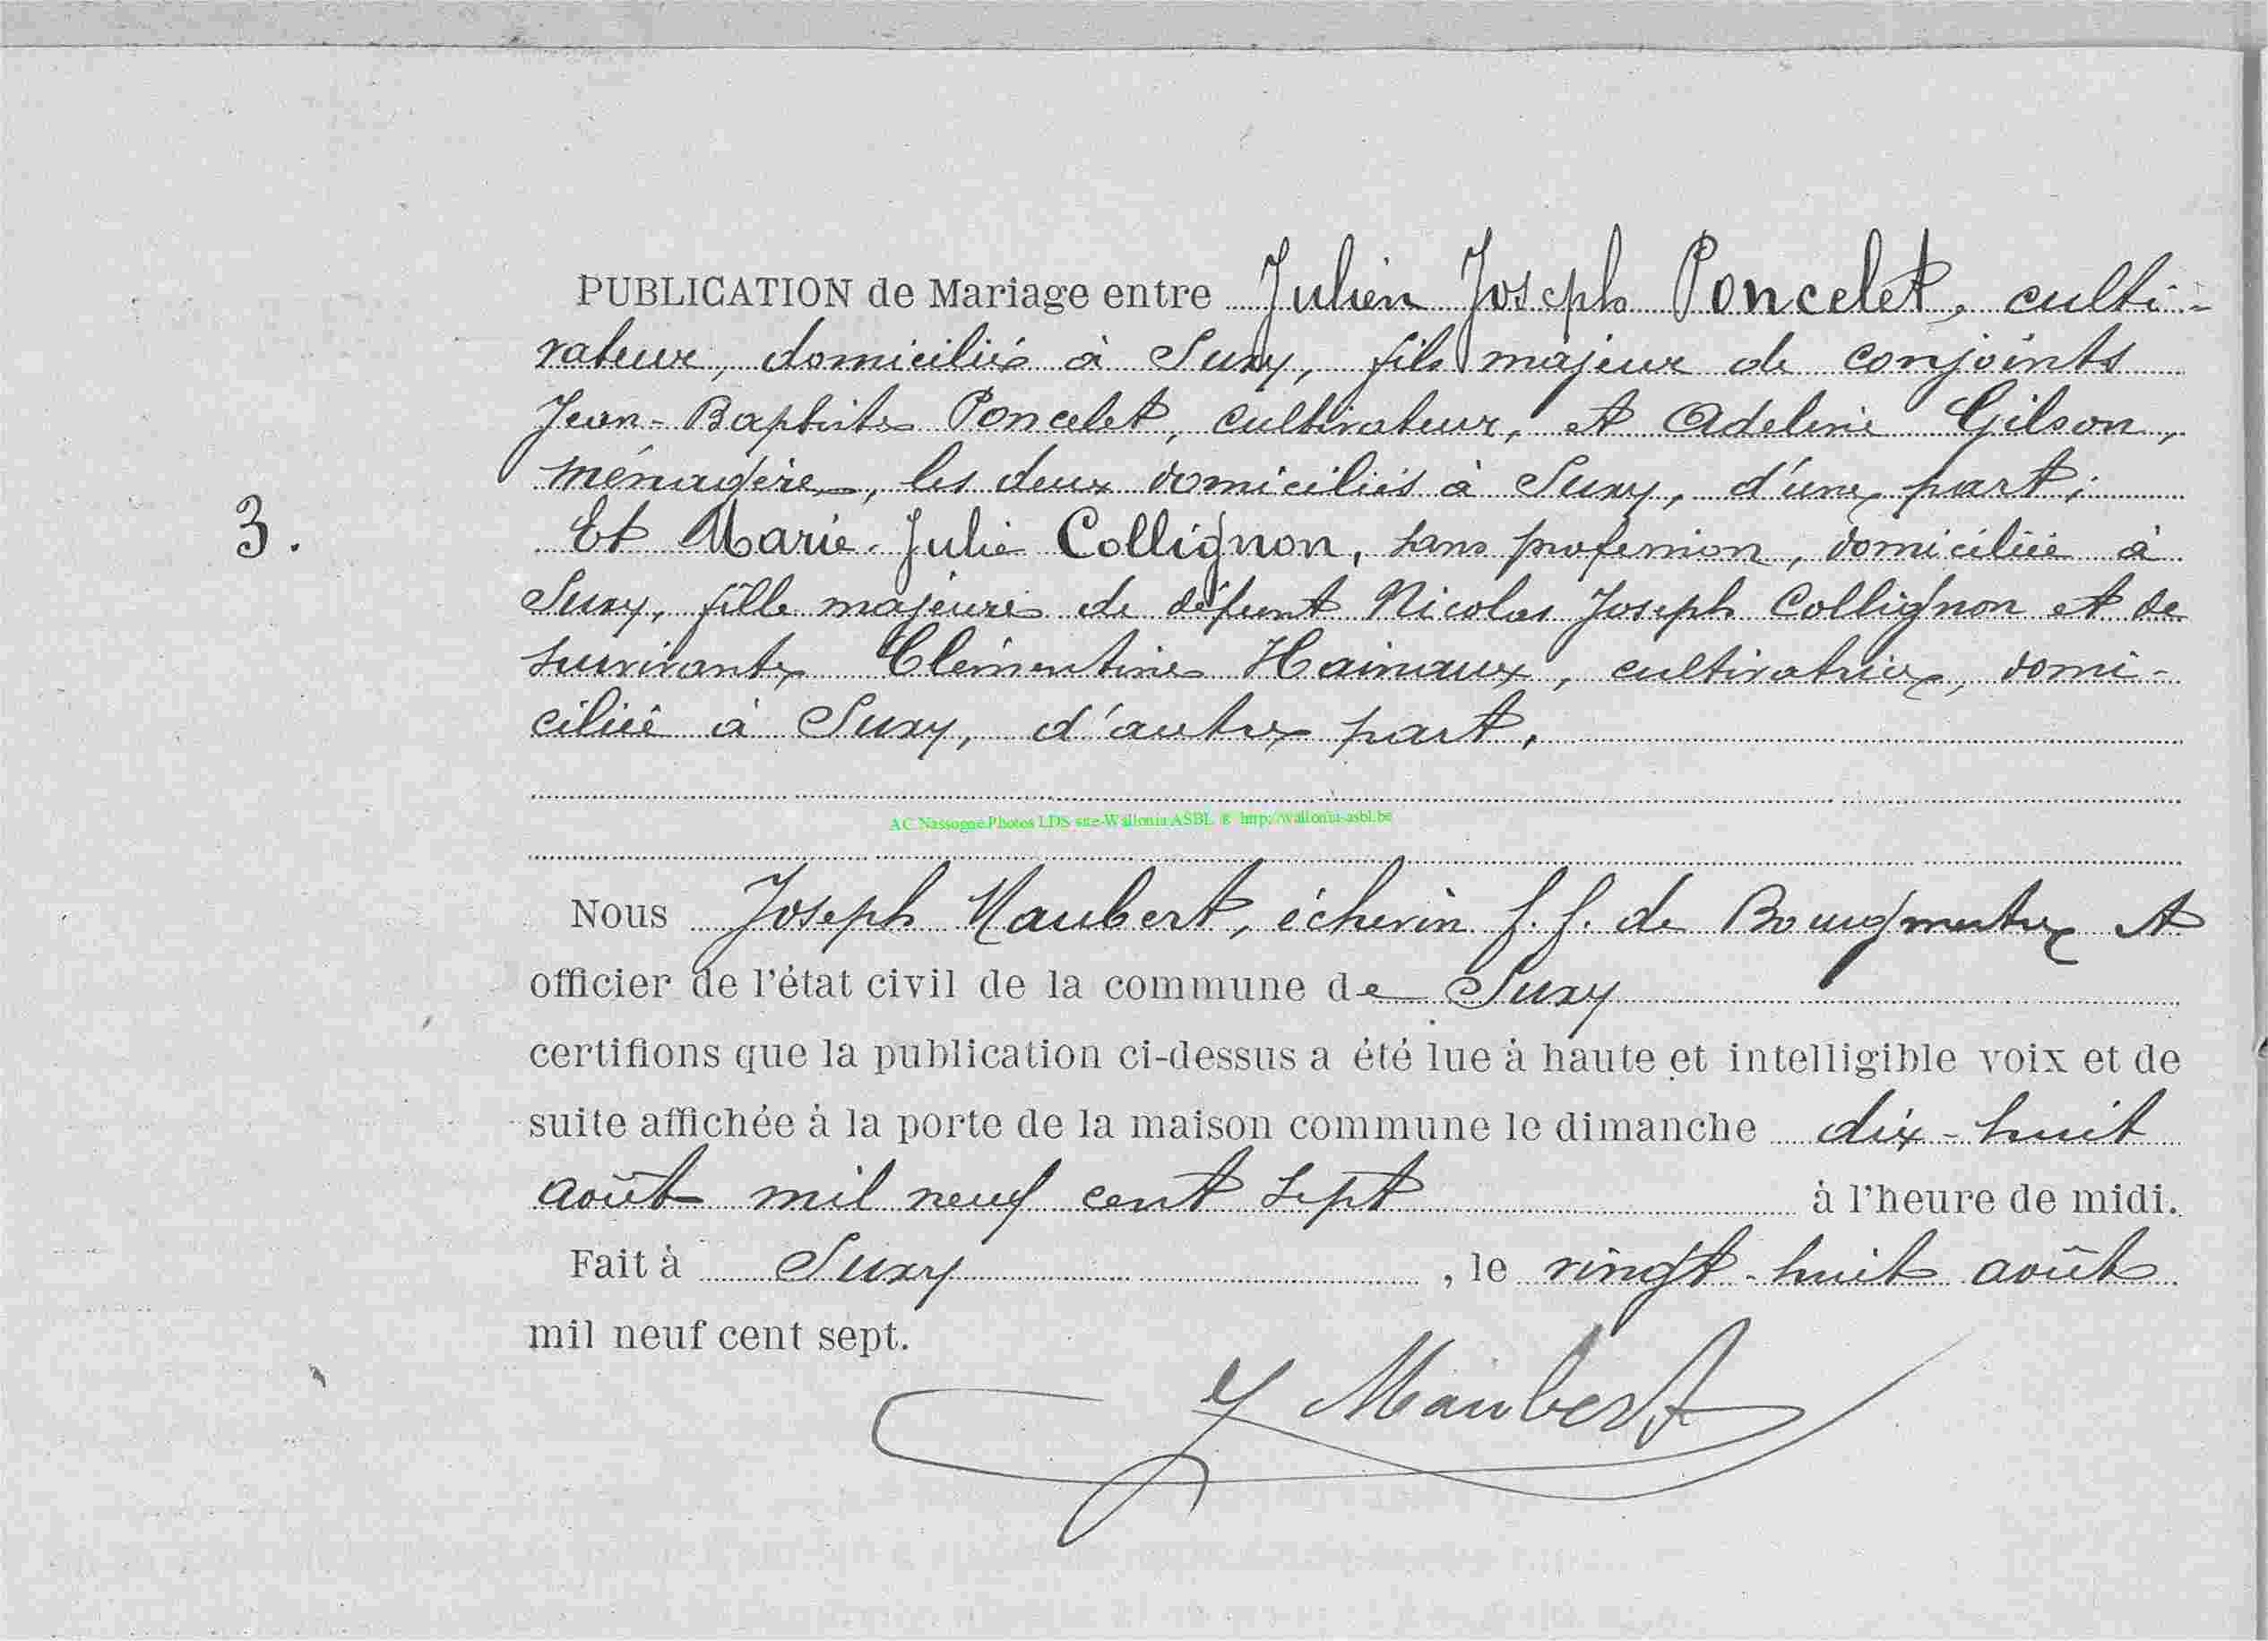 PUBLICATION de Mariage entre Julien Joseph Poncelet, culti-
vateur, domicilié à Suxy, fils majeur de conjoints
Jean-Baptiste Poncelet, cultivateur, et Adeline Gilson,
ménagère, les deux domiciliés à Suxy, d'une part;
3. Et Marie-Julie Collignon, sans profession, domiciliée à
Suxy, fille majeure de défunt Nicolas Joseph Collignon et de
survivante Clémentine Hainaux, cultivatrice, domi-
ciliée à Suxy, d'autre part.
AC Nassogne Photos LDS site-Wallonia ASBL © http://wallonia-asbl.be
Nous Joseph Maubert, échevin f.f. de Bourgmestre et
officier de l'état civil de la commune de Suxy
certifions que la publication ci-dessus a été lue à haute et intelligible voix et de
suite affichée à la porte de la maison commune le dimanche dix-huit
août mil neuf cent sept à l'heure de midi.
Fait à Suxy, le vingt-huit août
mil neuf cent sept.
J Maubert